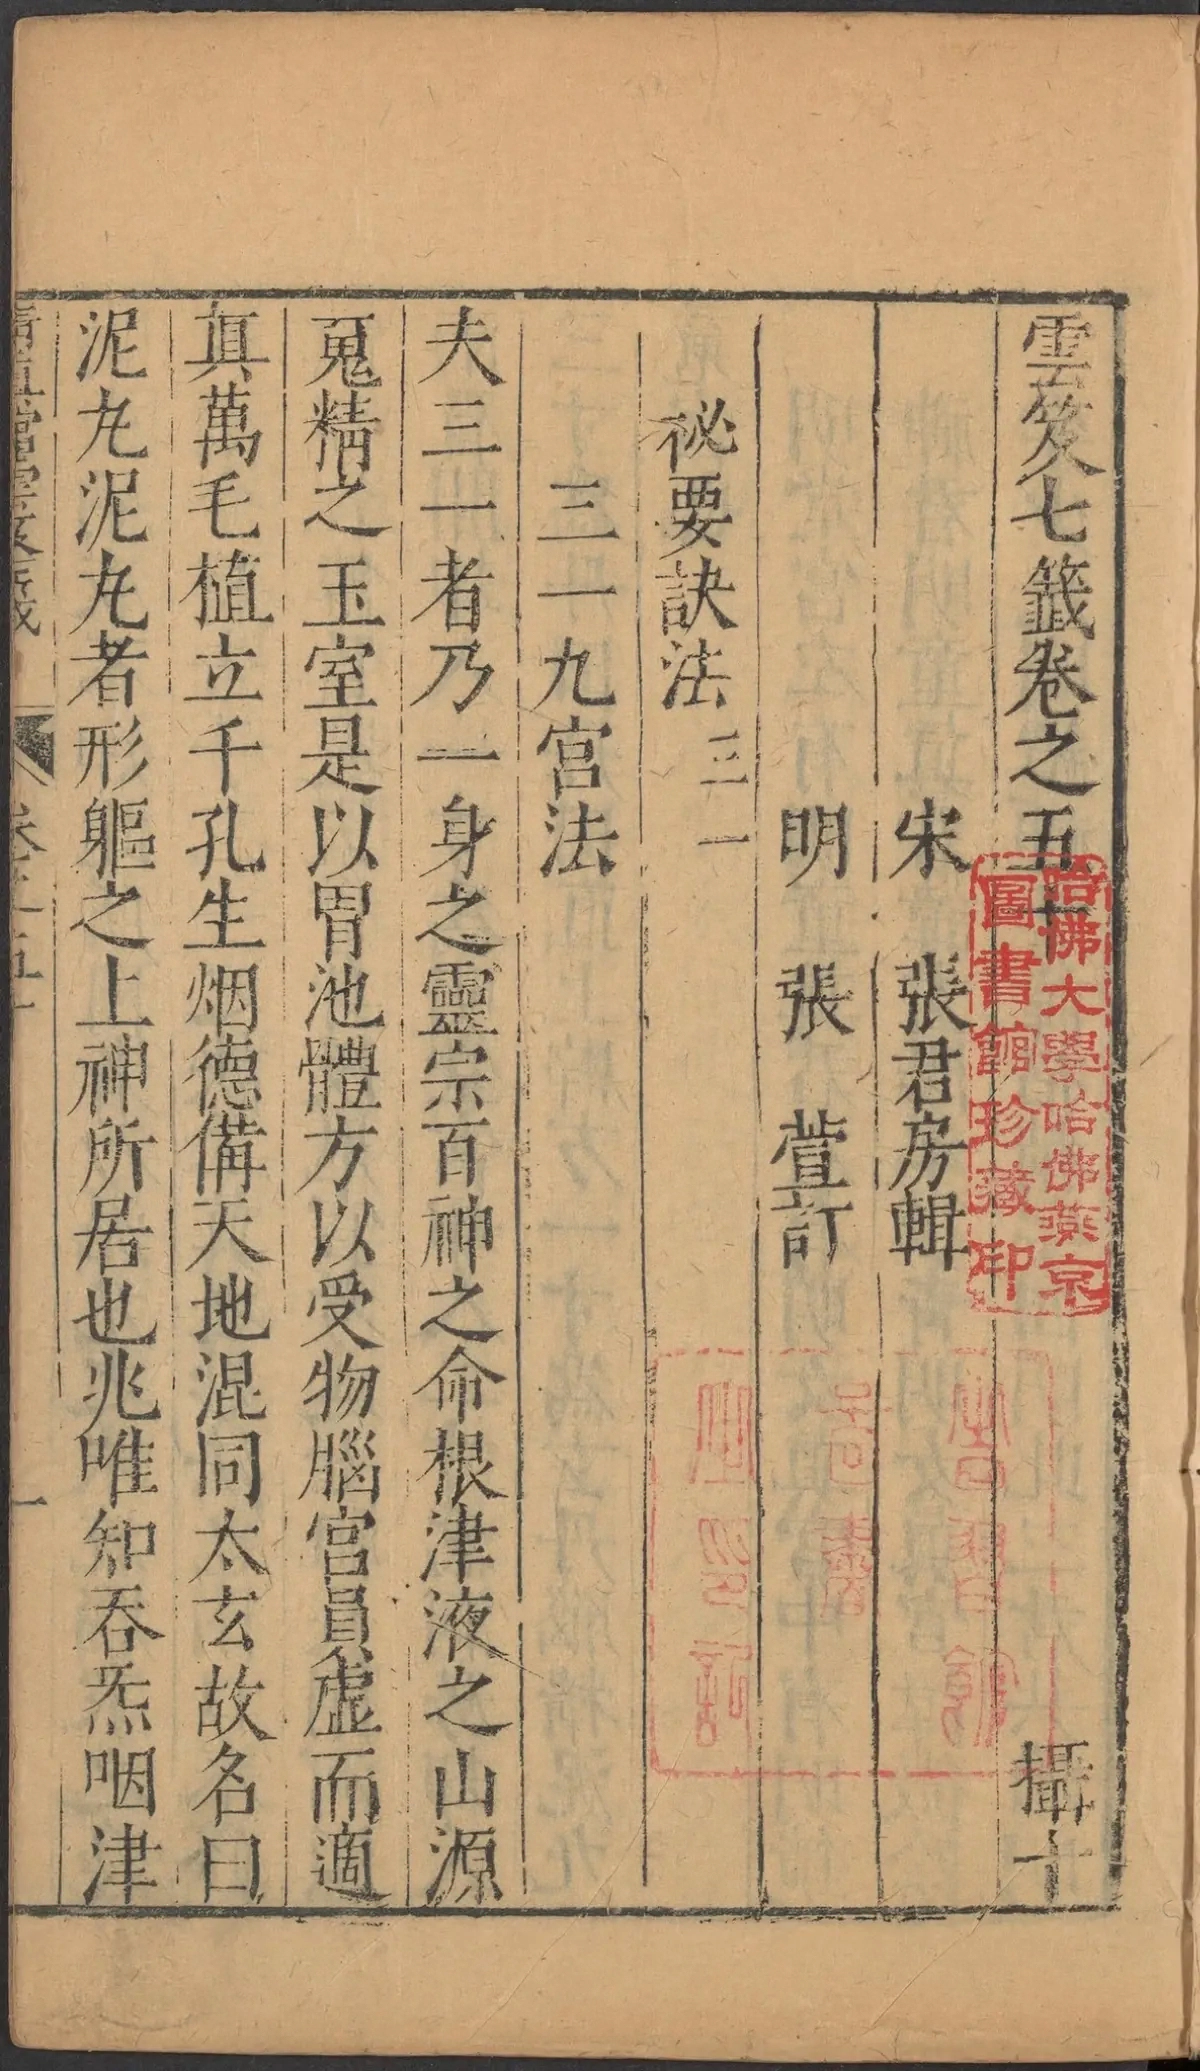 雲笈七籤卷之五十 攝十
宋 張君房輯
明 張 萱訂
祕要訣法三一
三一九宮法
夫三一者乃一身之靈宗百神之命根津液之山源
䰟精之玉室是以胃池體方以受物腦宮員虛而適
真萬毛植立千孔生烟德備天地混同太玄故名曰
泥丸泥丸者形軀之上神所居也兆唯知吞炁咽津
清真館
卷之五十
一
哈佛大學哈佛燕京
圖書館珍藏印